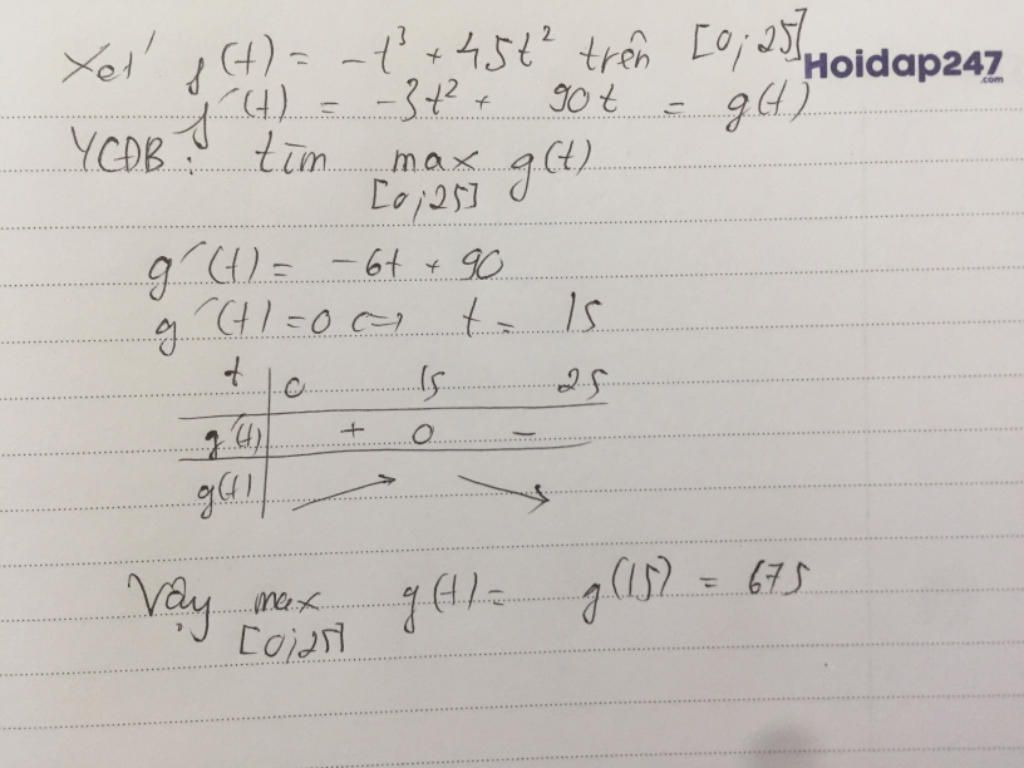 Xét f(t) = -t³ + 45t² trên [0;25]
Hoidap247
.com
f'(t) = -3t² + 90t = g(t)
YCĐB: tìm max g(t)
[0;25]
g'(t) = -6t + 90
g'(t) = 0 <=> t = 15
t 0 15 25
g'(t) + 0 -
g(t)
Vậy max g(t) = g(15) = 675
[0;25]